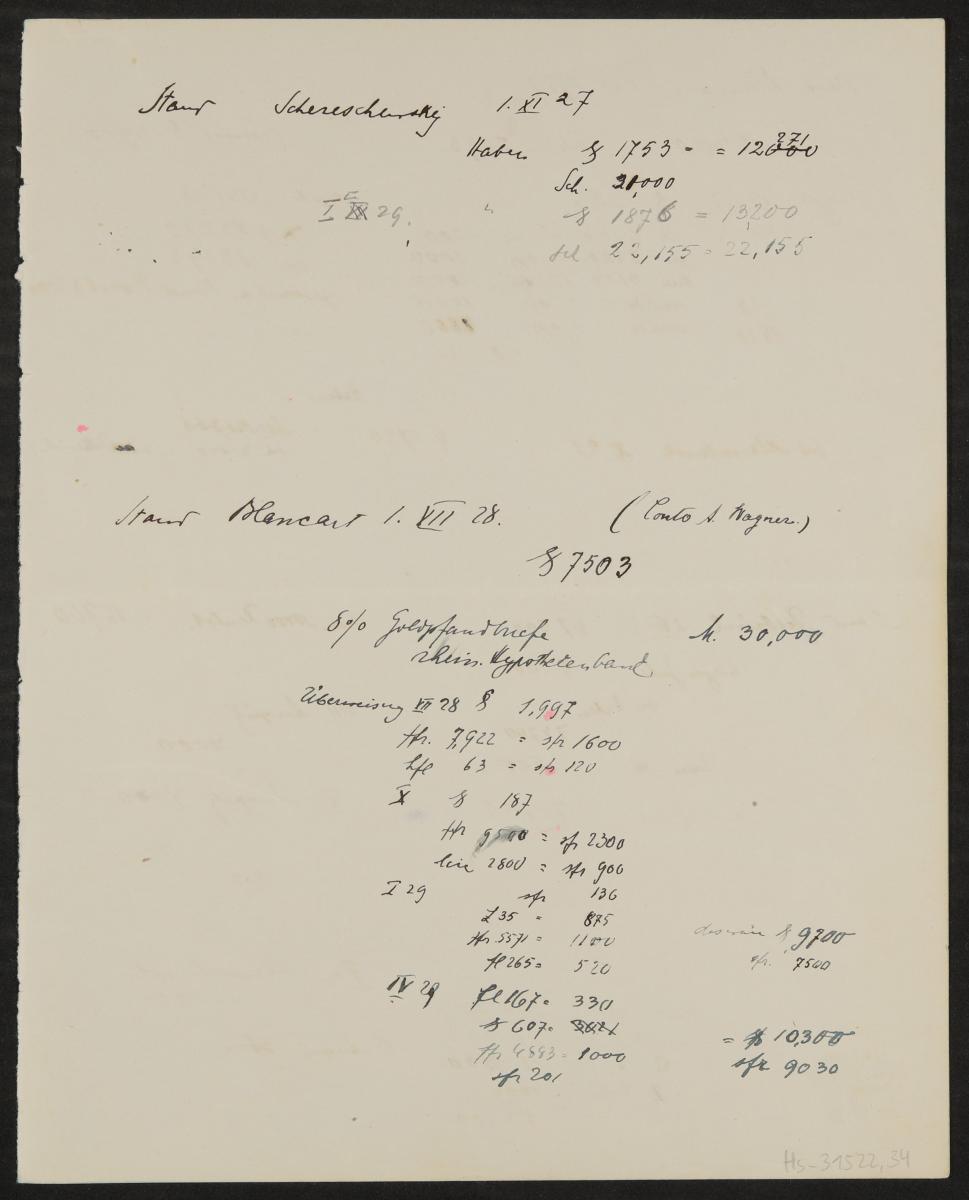 Stand Schereschewsky 1. XI 27
Haben $ 1753 - = 12000 271
Sch. 21,000
I 29. " $ 1876 = 13200
Sch 22,155 = 22,155
Stand Blancart 1. VII 28. (Conto A. Wagner.)
$ 7503
8% Goldpfandbriefe M. 30,000
rhein. Hypothekenbank
Überweisung VII 28 $ 1,997
ffr. 7,922 = sfr 1600
hfl 63 = sfr 120
X $ 187
ffr 9500 = sfr 2300
Lire 2800 = sfr 900
I 29 sfr 136
£ 35 = 875
ffr. 5571 = 1100 $ 9700
fl 265 = 520 sfr. 7500
IV 29 fl 167 = 330
$ 607 = = $ 10,300
ffr 4883 = 1000 sfr 9030
sfr 201
Hs-31522,34